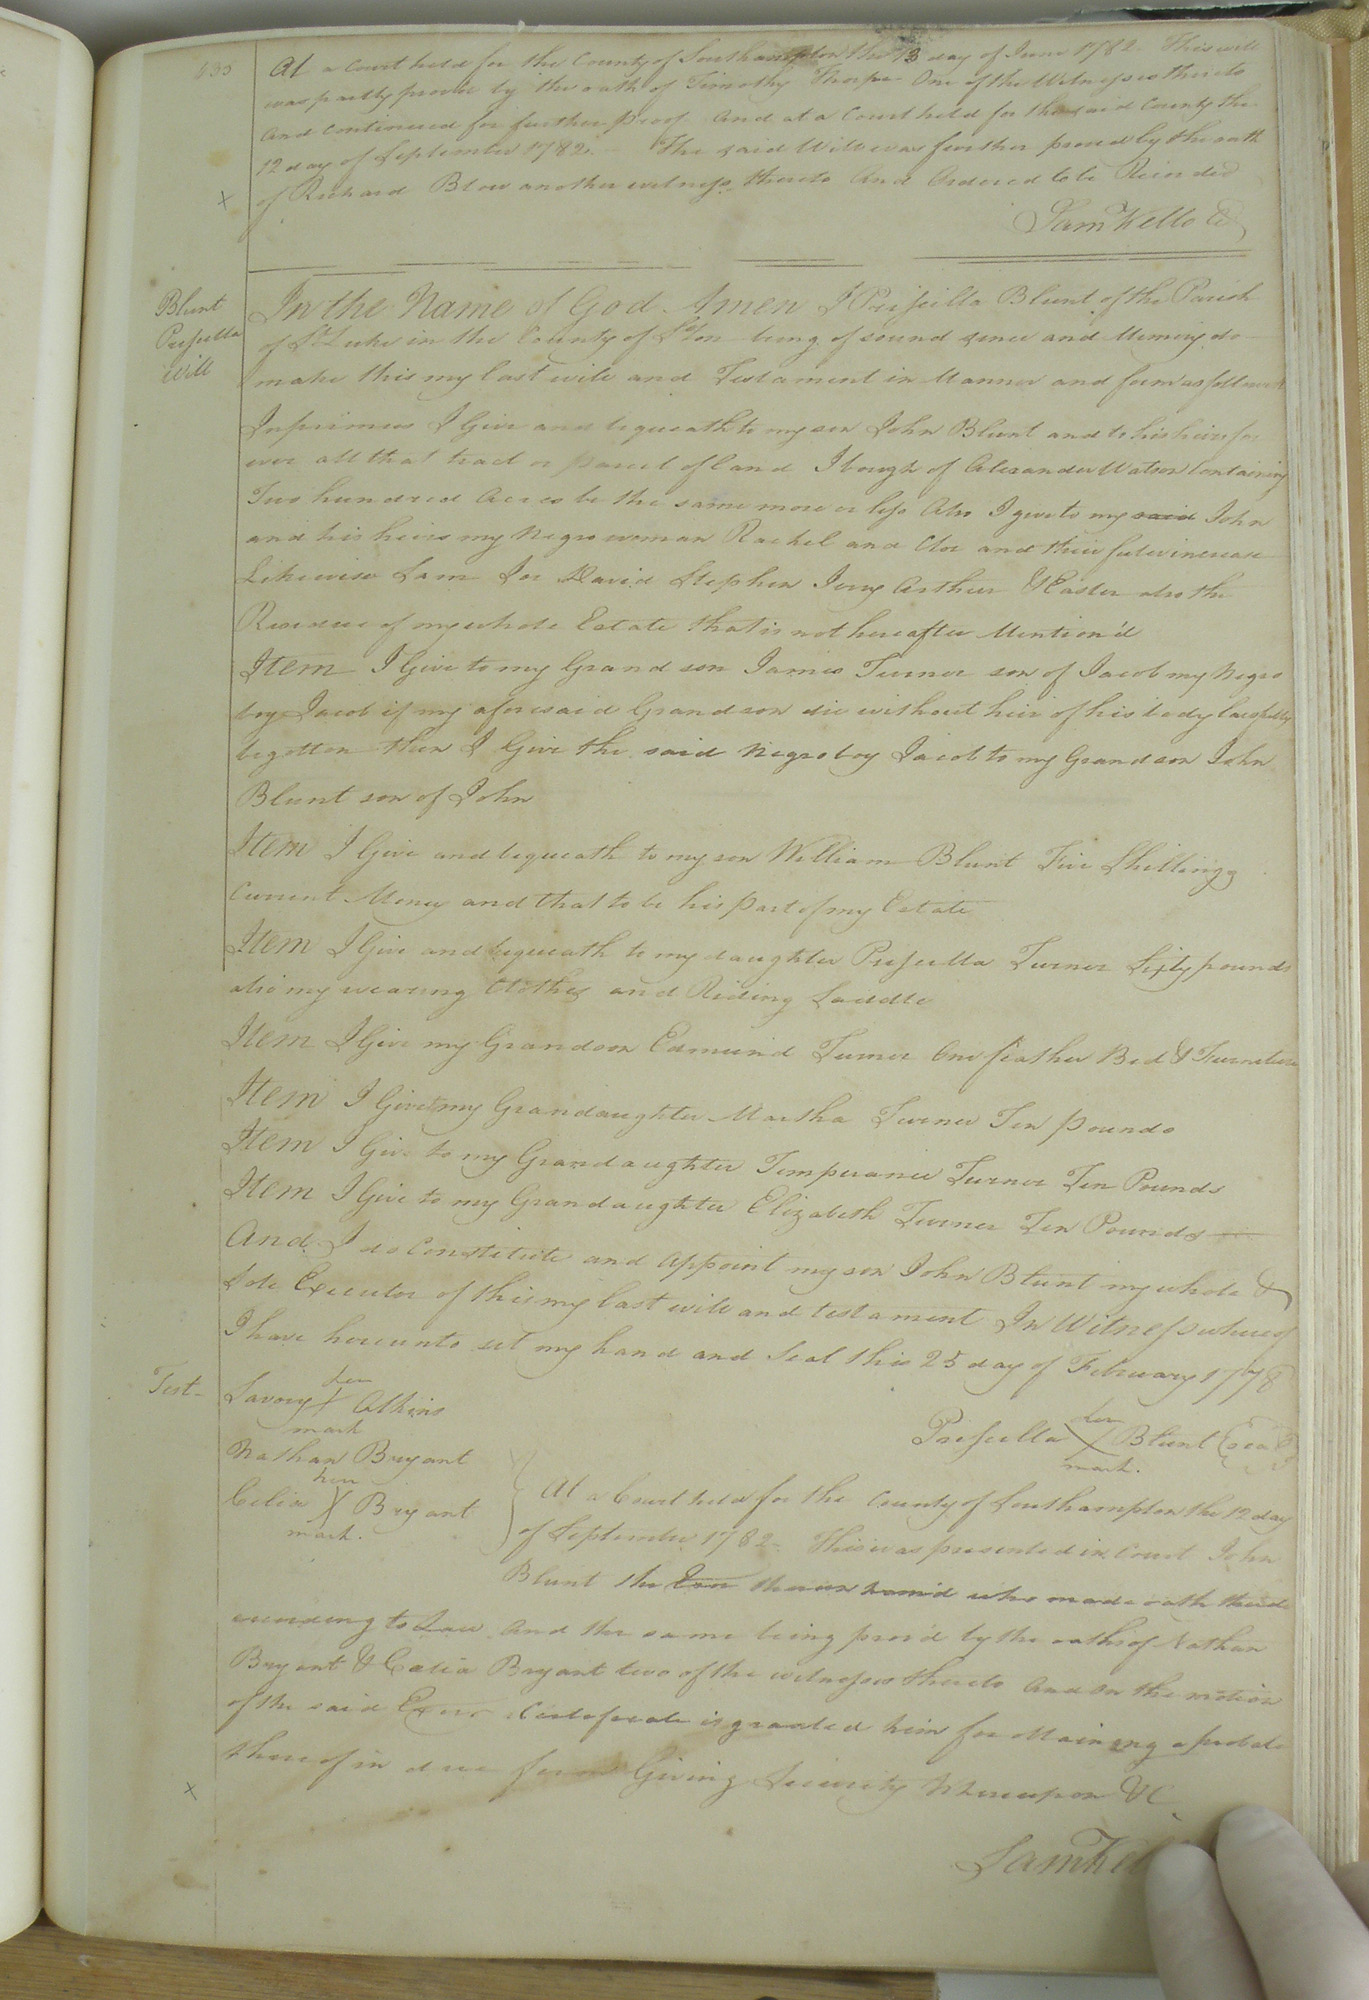 At a Court held for the County of Southampton the 13 day of June 1782. This will
was partly proved by the oath of Timothy Thorpe One of the Witnesses thereto
And continued for further proof And at a Court held for the said County the
12 day of September 1782. The said Will was further proved by the oath
of Richard Blow another witness thereto And Ordered to be Recorded
Sam Kello
Blunt
Priscilla
Will
In the Name of God Amen I Priscilla Blunt of the Parish
of St Luke in the County of Ston being of sound sence and Memory do
make this my last will and Testament in Manner and form as follows
Inprimus I Give and bequeath to my son John Blunt and to his heirs for
ever all that tract or parcel of land I bough of Alexander Watson Containing
Two hundred Acres be the same more or less Also I give to my said John
and his heirs my Negro woman Rachel and and their future increase
Likewise Sam Joe David Stephen Jerry Arthur & Easter also the
Residue of my whole Estate that is not hereafter Mention'd
Item I Give to my Grand son James Turner son of Jacob my Negro
boy Jacob if my aforesaid Grandson die without heir of his body lawfully
begotten then I Give the said Negro boy Jacob to my Grandson John
Blunt son of John
Item I Give and bequeath to my son William Blunt Five Shillings
Current Money and that to be his part of my Estate
Item I Give and bequeath to my daughter Priscilla Turner Sixty pounds
also my wearing Clothes and Riding Saddle
Item I Give my Grandson Edmund Turner One feather Bed & Furniture
Item I Give my Grandaughter Martha Turner Ten pounds
Item I Give to my Grandaughter Temperance Turner Ten Pounds
Item I Give to my Grandaughter Elizabeth Turner Ten Pounds
And I do Constitute and Appoint my son John Blunt my whole &
Sole Executor of this my last will and testament In Witness whereof
I have hereunto set my hand and Seal this 25 day of February 1778
Test
her
Savory X Atkins
mark
Nathan Bryant
her
Celia X Bryant
mark.
her
Priscilla X Blunt (seal)
mark.
At a Court held for the County of Southampton the 12 day
of September 1782. This was presented in Court John
Blunt the Exor therein nam'd who made oath thereto
according to Law And the same being prov'd by the oaths of Nathan
Bryant & Celia Bryant two of the witnesses thereto And on the motion
of the said Exor Certificate is granted him for obtaining a probate
thereof in due form Giving Security Whereupon &C
Sam Kel